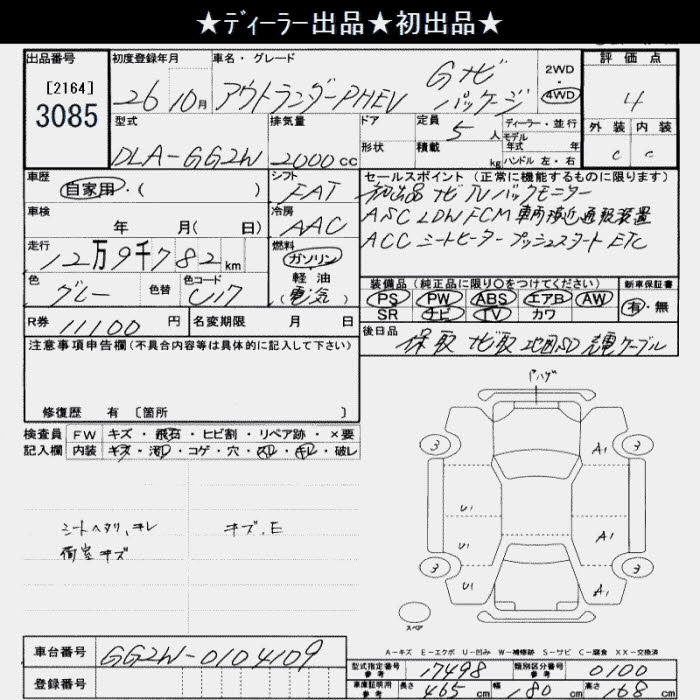 ★ディーラー出品★初出品★
出品番号
[2164]
3085
初度登録年月
26 10月
車名・グレード
アウトランダーPHEV
Gナビ
パッケージ
2WD
・
4WD
評価点
4
型式
DLA-GG2W
排気量
2000cc
ドア
形状
定員
5人
積載
kg
ディーラー・並行
モデル
年式 年
ハンドル 左・右
外装 内装
C C
車歴
自家用・( )
シフト
FAT
セールスポイント (正常に機能するものに限ります)
初出品 ナビTVバックモニター
ASC LDW FCM 車両接近通報装置
ACC シートヒーター プッシュスタート ETC
車検
年 月( 日)
冷房
AAC
走行
12万9千782km
燃料
ガソリン
・
軽油
(電気)
色
グレー
色替
色コード
U17
装備品 (純正品に限り〇をつけてください)
PS PW ABS エアB AW
SR ナビ TV カワ
新車保証書
有・無
R券 11100円
名変期限 月 日
後日品
保取 ナビ取 地図SD 充電ケーブル
注意事項申告欄(不具合内容等は具体的に記入して下さい)
修復歴 有 〔箇所 〕
検査員
記入欄
FW キズ・飛石・ヒビ割・リペア跡・×要
内装 キズ・汚レ・コゲ・穴・スレ・キレ・破レ
シートヘタリ、キレ
荷室キズ
キズ、E
Pハゲ
3 3
A1
U1
U1 A1
3 U1 A1 3
スペア
A-キズ E-エクボ U-凹み W-補修跡 S-サビ C-腐食 XX-交換済
車台番号
GG2W-0104109
登録番号
型式指定番号
参考
17498
類別区分番号
参考
0100
車庫証明用
参考
長さ 465cm 幅 180cm 高さ 168cm